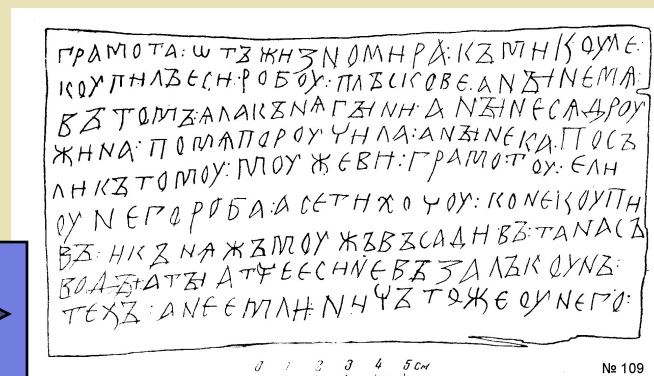 ГРАМОТА : Ѡ ТЪ ЖИЗНОМИРА : КЪ МИКОУЛЕ :
КОУПИЛЪ ЕСИ : РОБОУ : ПЛЪСКОВЕ : А НЫНЕ МѦ :
ВЪ ТОМЪ : ѦЛА КЪНѦГЫНИ : А НЫНЕ СѦ ДРОУ
ЖИНА : ПО МѦ ПОРОУЧИЛА : А НЫНЕ КА : ПОСЪ
ЛИ КЪ ТОМОУ : МОУЖЕВИ : ГРАМОТОУ : ЕЛИ
ОУ НЕГО РОБА : А СЕ ТИ ХОЧОУ : КОНЕ КОУПИ
ВЪ : И КЪНѦЖЪ МОУЖЪ ВЪСАДИВЪ : ТА НА СЪ
ВОДЫ : А ТЫ АТЧЕ ЕСИ НЕ ВЪЗАЛЪ КОУНЪ :
ТЕХЪ : А НЕ ЕМЛИ : НИЧЪТОЖЕ ОУ НЕГО :
0 1 2 3 4 5 см
№ 109